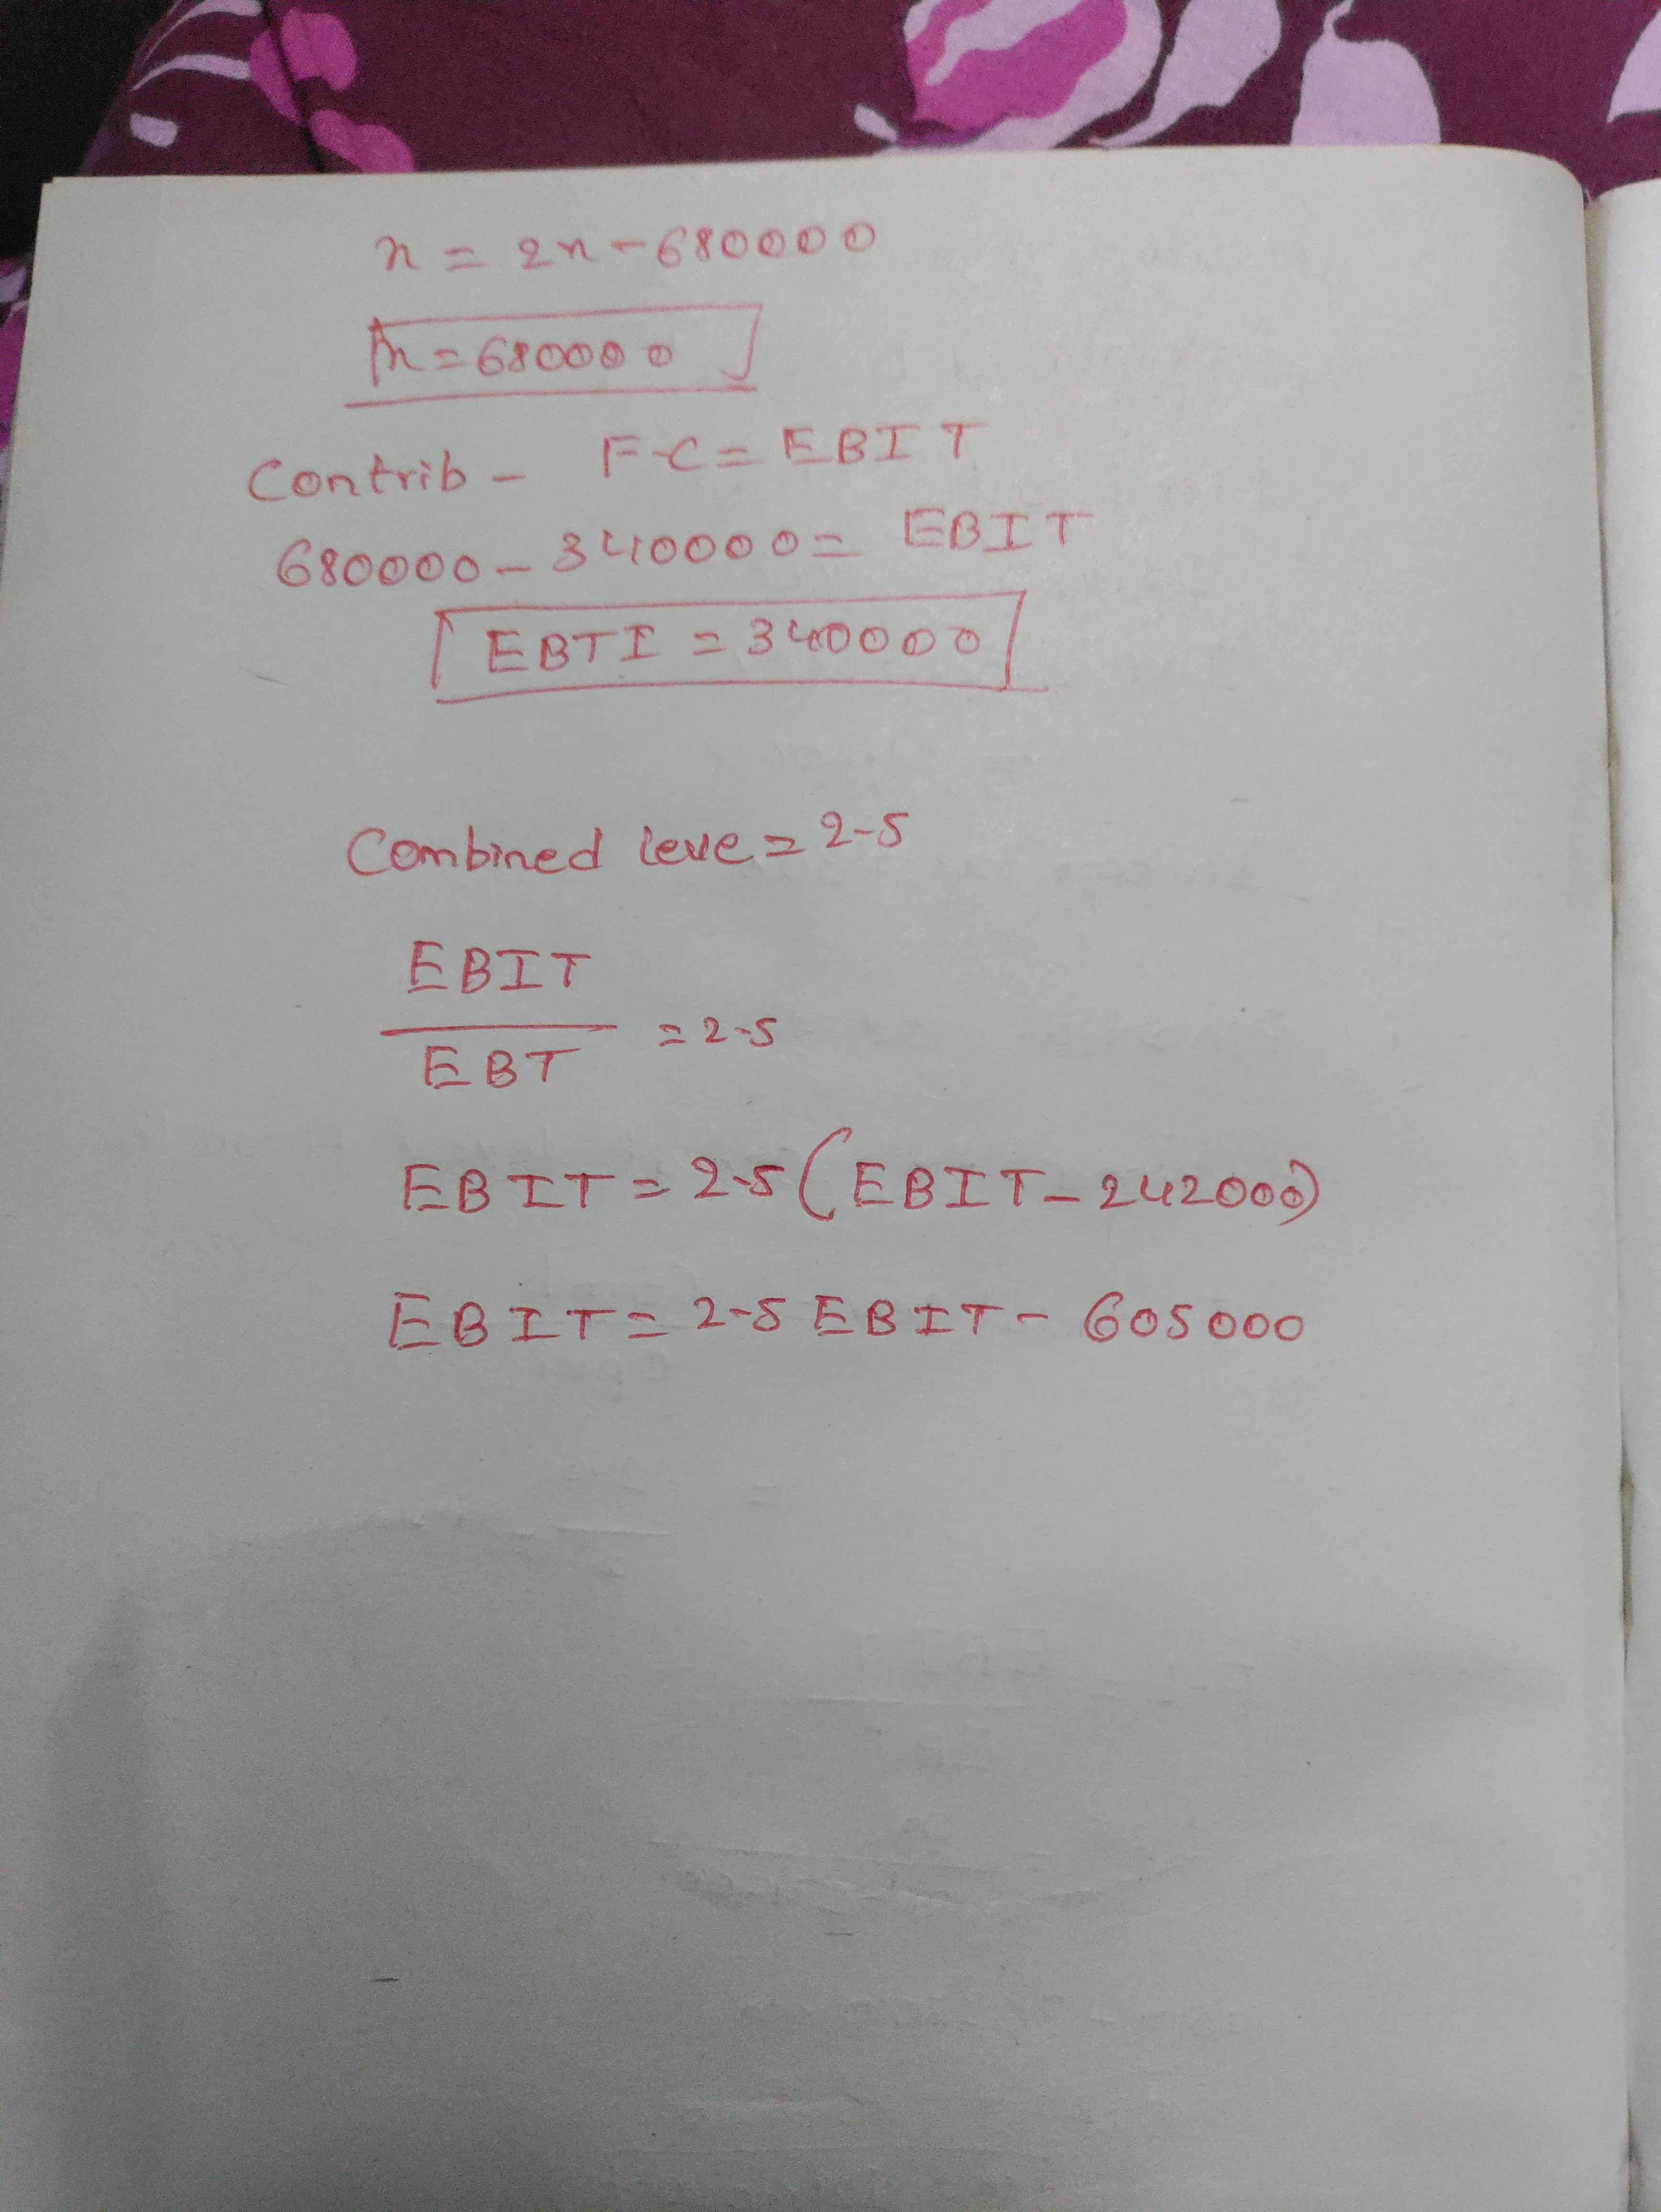 n = 2n - 680000
n = 680000
Contrib - F-C = EBIT
680000 - 340000 = EBIT
EBTI = 340000
Combined leve = 2-5
EBIT
= 2-5
EBT
EBIT = 2-5 (EBIT - 242000)
EBIT = 2-5 EBIT - 605000